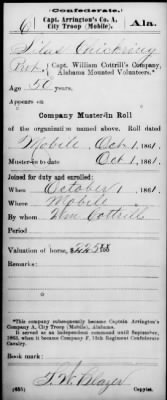 (Confederate.)
C
Capt. Arrington's Co. A,
City Troop (Mobile),
Ala.
Silas Chickering
Pvt, Capt. William Cottrill's Company,
Alabama Mounted Volunteers.*
Age 50 years.
Appears on
Company Muster-in Roll
of the organization named above. Roll dated
Mobile, Oct 1, 1861.
Muster-in to date Oct 1, 1861.
Joined for duty and enrolled:
When October 1, 1861.
Where Mobile
By whom Wm Cottrill
Period
Valuation of horse, $225 00/100
Remarks:
*This company subsequently became Captain Arrington's
Company A, City Troop (Mobile), Alabama.
It served as an independent command until September,
1863, when it became Company F, 15th Regiment Confederate
Cavalry.
Book mark:
T. W. Blazer
(635)
Copyist.